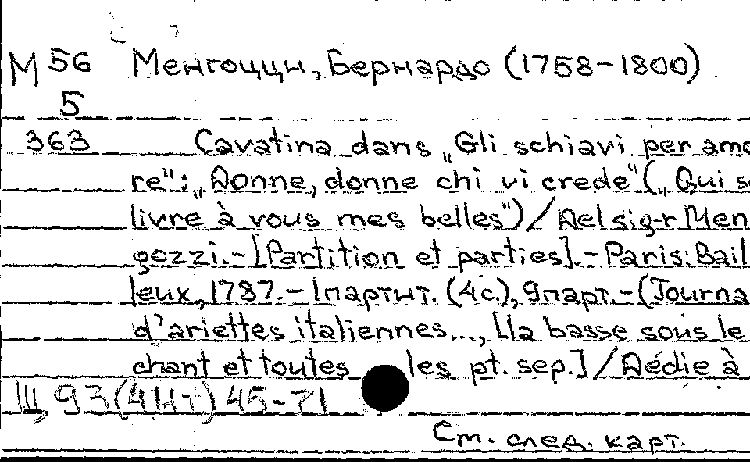 М 56 Менгоцци, Бернардо (1758-1800)
5
363 Cavatina dans „Gli schiavi per amo
re": „Donne, donne chi vi crede" („Qui se
livre à vous mes belles")/Del sig-r Men
gozzi.-[Partition et parties].-Paris: Bail
leux, 1787.-1партит. (4с.), 9парт.-(Journa
d'ariettes italiennes..., [la basse sous le
chant et toutes les pt. sep.]/Dédie à
III, 93(4Ит) 45-71
См. след. карт.